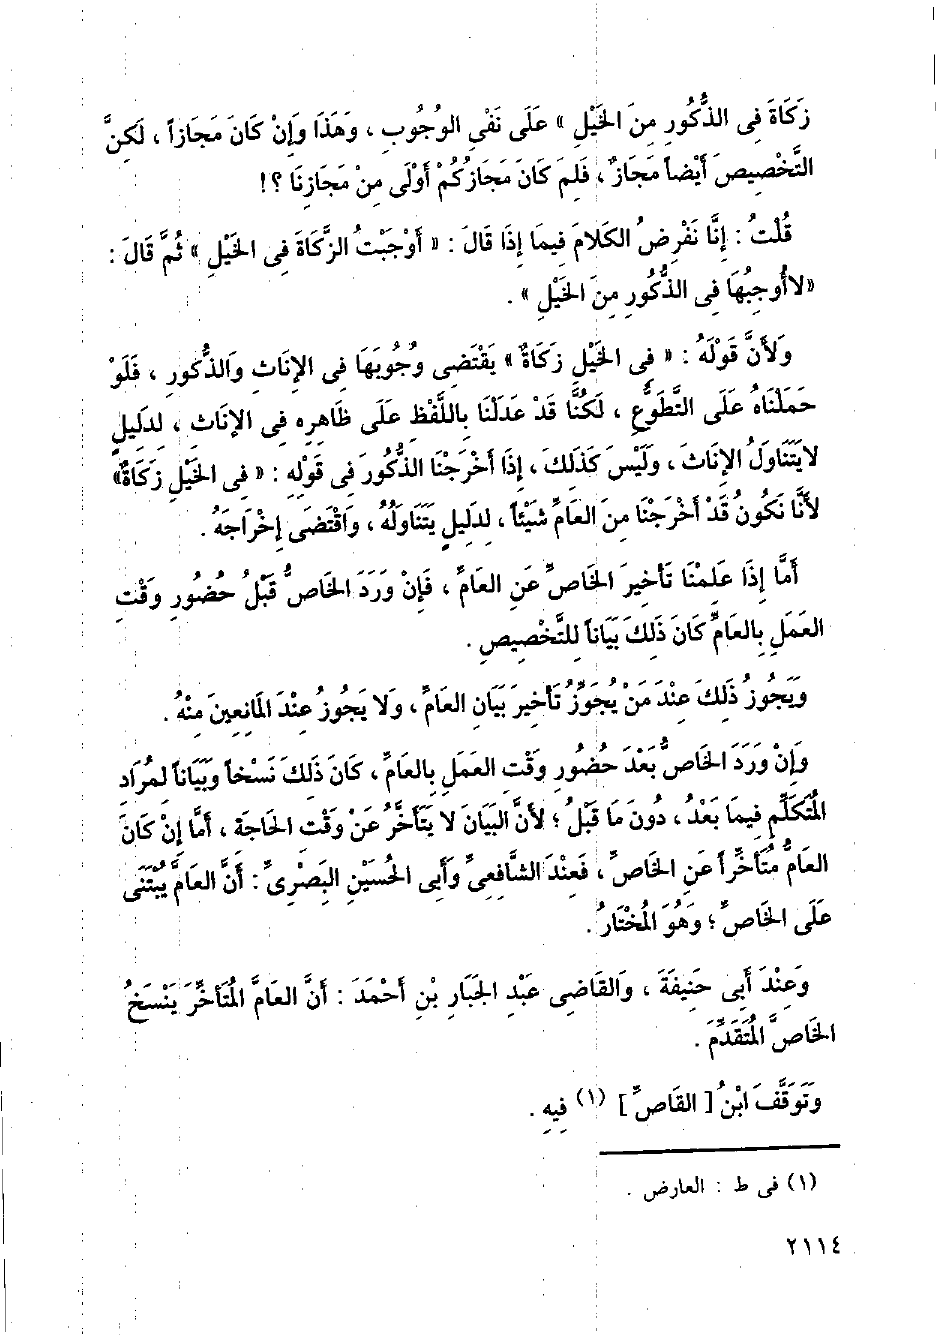 زَكَاةَ فِى الذُّكُورِ مِنَ الخَيْلِ » عَلَى نَفْىِ الوُجُوبِ ، وَهَذَا وَإِنْ كَانَ مَجَازاً ، لَكِنَّ
التَّخْصِيصَ أَيْضاً مَجَازٌ ، فَلِمَ كَانَ مَجَازُكُمْ أَوْلَى مِنْ مَجَازِنَا ؟!
قُلْتُ : إِنَّا نَفْرِضُ الكَلامَ فِيمَا إِذَا قَالَ : « أَوْجَبْتُ الزَّكَاةَ فِى الخَيْلِ » ثُمَّ قَالَ :
«لا أُوجِبُهَا فِى الذُّكُورِ مِنَ الخَيْلِ » .
وَلأَنَّ قَوْلَهُ : « فِى الخَيْلِ زَكَاةٌ » يَقْتَضِى وُجُوبَهَا فِى الإِنَاثِ وَالذُّكُورِ ، فَلَوْ
حَمَلْنَاهُ عَلَى التَّطَوُّعِ ، لَكُنَّا قَدْ عَدَلْنَا بِاللَّفْظِ عَلَى ظَاهِرِهِ فِى الإِنَاثِ ، لِدَلِيلٍ
لا يَتَنَاوَلُ الإِنَاثَ ، وَلَيْسَ كَذَلِكَ ، إِذَا أَخْرَجْنَا الذُّكُورَ فِى قَوْلِهِ : « فِى الخَيْلِ زَكَاةٌ»
لأَنَّا نَكُونُ قَدْ أَخْرَجْنَا مِنَ العَامِّ شَيْئاً ، لِدَلِيلٍ يَتَنَاوَلُهُ ، وَاقْتَضَى إِخْرَاجَهُ .
أَمَّا إِذَا عَلِمْنَا تَأْخِيرَ الخَاصِّ عَنِ العَامِّ ، فَإِنْ وَرَدَ الخَاصُّ قَبْلُ حُضُورِ وَقْتِ
العَمَلِ بِالعَامِّ كَانَ ذَلِكَ بَيَاناً لِلتَّخْصِيصِ .
وَيَجُوزُ ذَلِكَ عِنْدَ مَنْ يُجَوِّزُ تَأْخِيرَ بَيَانِ العَامِّ ، وَلا يَجُوزُ عِنْدَ المَانِعِينَ مِنْهُ .
وَإِنْ وَرَدَ الخَاصُّ بَعْدَ حُضُورِ وَقْتِ العَمَلِ بِالعَامِّ ، كَانَ ذَلِكَ نَسْخاً وَبَيَاناً لِمُرَادِ
المُتَكَلِّمِ فِيمَا بَعْدُ ، دُونَ مَا قَبْلُ ؛ لأَنَّ البَيَانَ لا يَتَأَخَّرُ عَنْ وَقْتِ الحَاجَةِ ، أَمَّا إِنْ كَانَ
العَامُّ مُتَأَخِّراً عَنِ الخَاصِّ ، فَعِنْدَ الشَّافِعِىِّ وَأَبِى الحُسَيْنِ البَصْرِىِّ : أَنَّ العَامَّ يُبْتَنَى
عَلَى الخَاصِّ ؛ وَهُوَ المُخْتَارُ .
وَعِنْدَ أَبِى حَنِيفَةَ ، وَالقَاضِى عَبْدِ الجَبَارِ بْنِ أَحْمَدَ : أَنَّ العَامَّ المُتَأَخِّرَ يَنْسَخُ
الخَاصَّ المُتَقَدِّمَ .
وَتَوَقَّفَ ابْنُ [ القَاصِّ ] (١) فِيهِ .
(١) فى ط : العارض .
٢١١٤